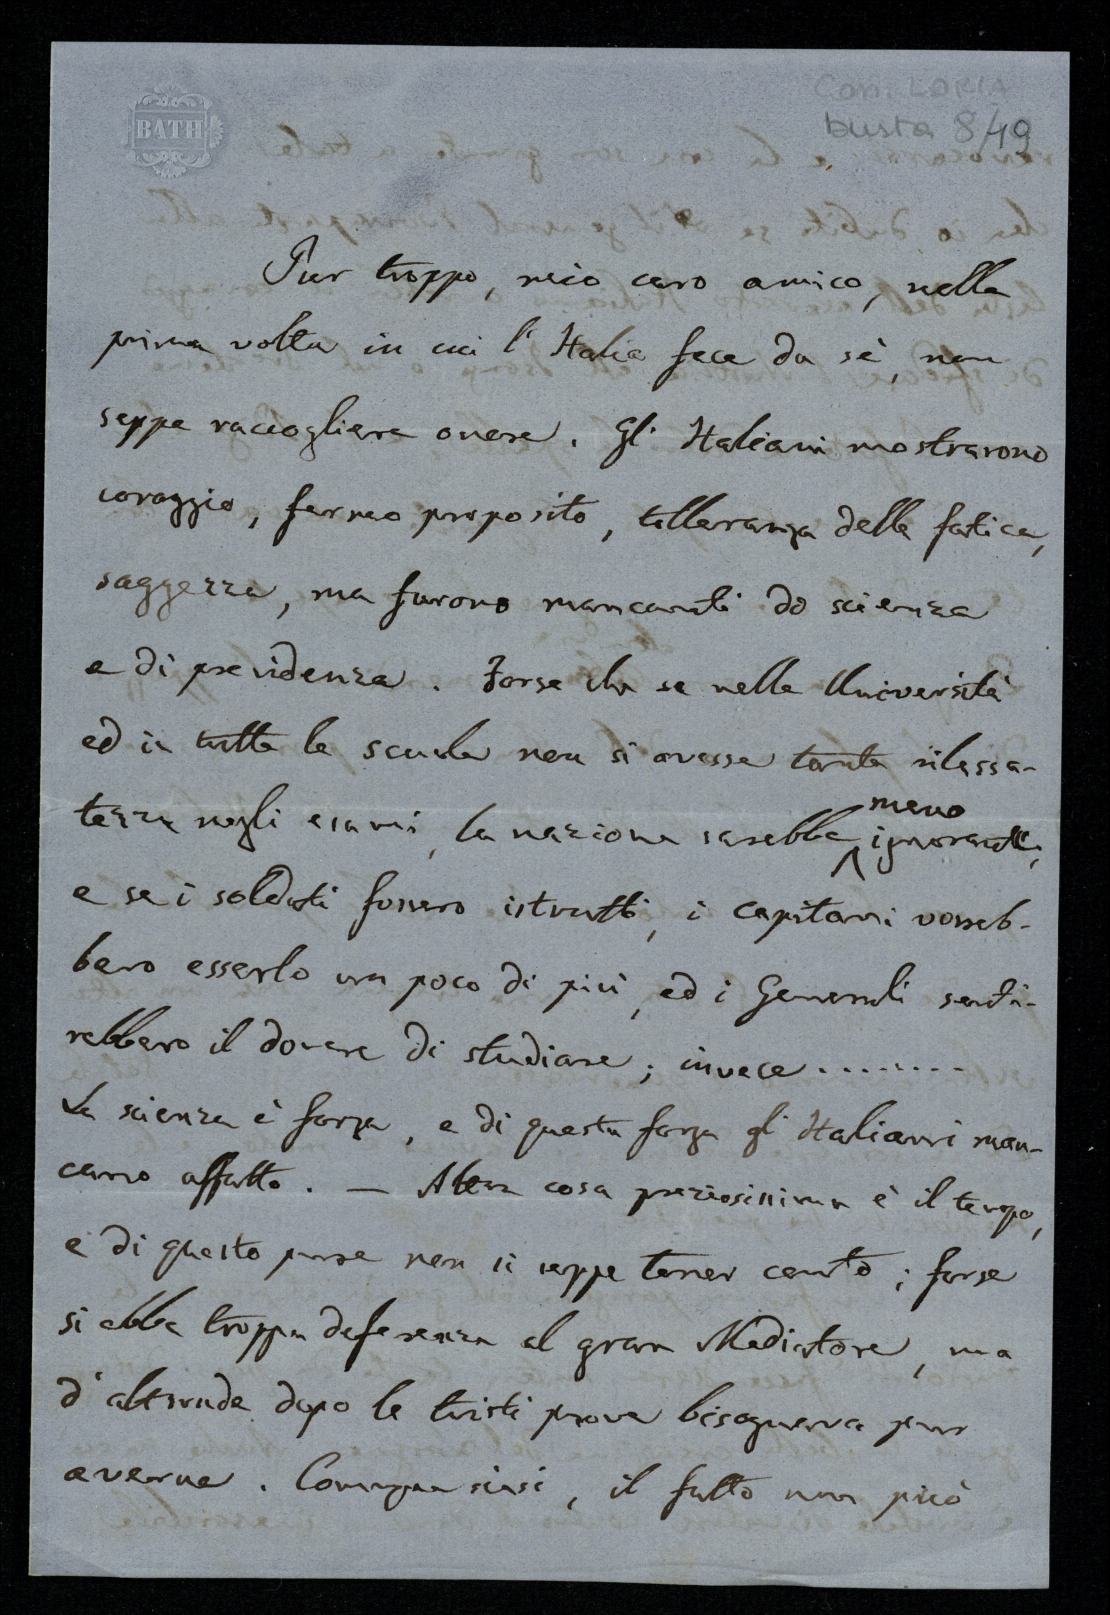 BATH
Corr. LORIA
busta 8/49
Pur troppo, mio caro amico, nella
prima volta in cui l'Italia fece da sè, non
seppe raccogliere onore. Gl'Italiani mostrarono
coraggio, fermo proposito, tolleranza della fatica,
saggezza, ma furono mancanti di scienza
e di previdenza. Forse che se nelle Università
ed in tutte le scuole non si avesse tanta rilassa-
tezza negli esami, la nazione sarebbe meno ignorante,
e se i soldati fossero istrutti, i capitani vorreb-
bero esserlo un poco di più, ed i Generali senti-
rebbero il dovere di studiare; invece........
La scienza è forza, e di questa forza gl'Italiani man-
cano affatto. — Altra cosa preziosissima è il tempo,
e di questo pure non si seppe tener conto; forse
si ebbe troppa deferenza al gran Mediatore, ma
d'altronde dopo le tristi prove bisognava pur
averne. Comunque siasi, il fatto non può